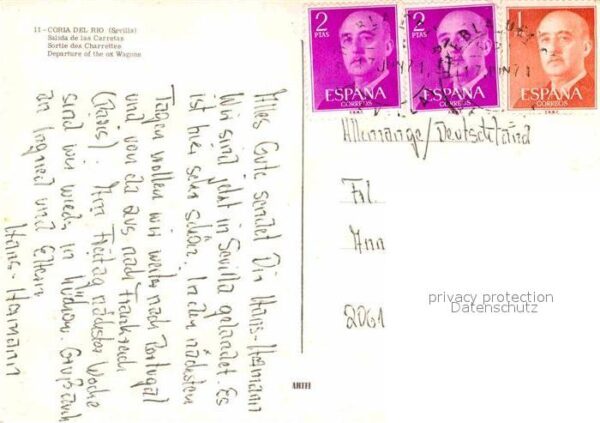 11 - CORIA DEL RIO (Sevilla)
Salida de las Carretas
Sortie des Charrettes
Departure of the ox Wagons
2
PTAS
ESPAÑA
CORREOS
2
PTAS
ESPAÑA
CORREOS
1
ESPAÑA
CORREOS
Allemange/Deutschland
Frl.
Ann
2061
privacy protection
Datenschutz
ARTFI
Alles Gute sendet Dir Hans-Hermann
Wir sind jetzt in Sevilla gelandet. Es
ist hier sehr schön. In den nächsten
Tagen wollen wir weiter nach Portugal
und von da aus nach Frankreich
(Paris). Am Freitag nächster Woche
sind wir wieder in München. Grüß auch
an Ingrid und Eltern
Hans-Hermann